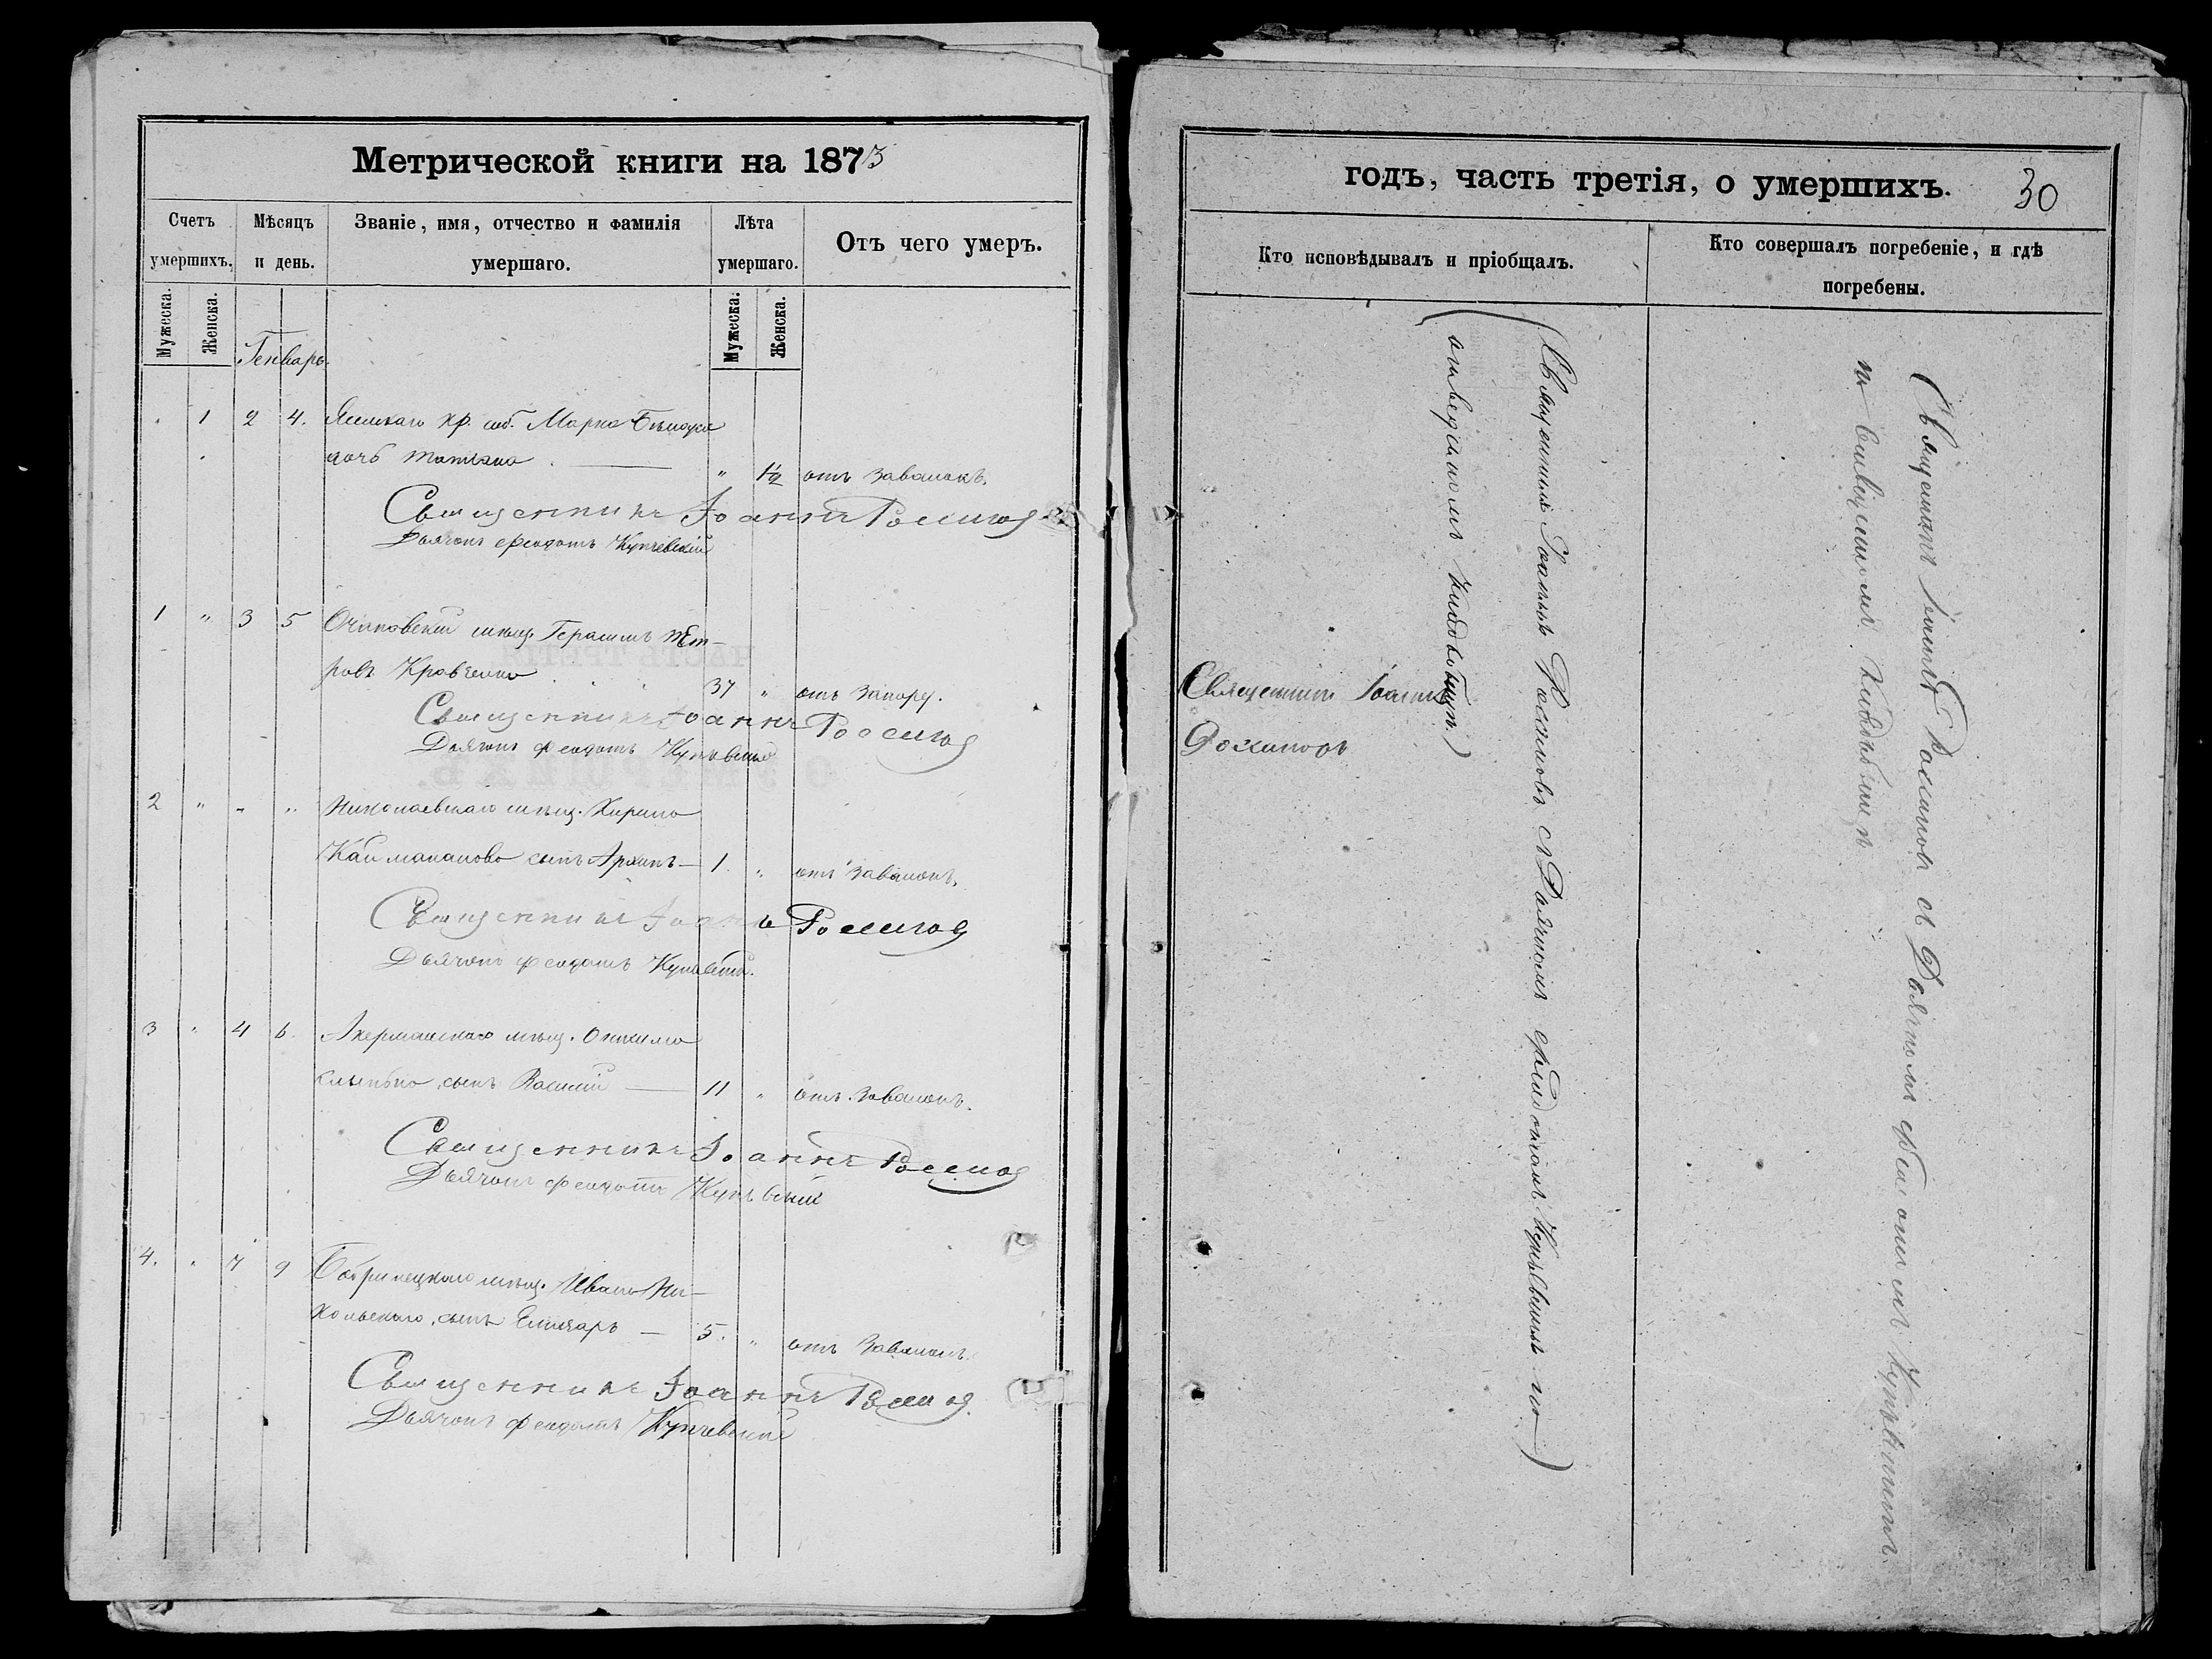 Метрической книги на 1873
Счетъ умершихъ.
Мѣсяцъ и день.
Званіе, имя, отчество и фамилія умершаго.
Лѣта умершаго.
Отъ чего умеръ.
Мужеска.
Женска.
Мужеска.
Женска.
Генварь.
1 2 4. кр. Марка
дочь Татіана " 1½ отъ завалокъ.
Священникъ Іоаннъ Россиновъ
Дьячокъ Феодотъ Купчевскій
1 " 3 5 Очаковскій мѣщ. Герасимъ Пет-
ровъ Кравченко 37 " отъ запору.
Священникъ Іоаннъ Россиновъ
Дьячокъ Феодотъ Купчевскій
2 " " " Николаевскаго мѣщ. Кирила
сынъ Архипъ — 1 " отъ завалокъ.
Священникъ Іоаннъ Россиновъ
Дьячокъ Феодотъ Купчевскій.
3 " 4 6. Акерманскаго мѣщ.
сынъ Василій — 11 " отъ завалокъ.
Священникъ Іоаннъ Россиновъ
Дьячокъ Феодотъ Купчевскій
4. " 7 9 Бобринецкаго мѣщ. Ивана Ни-
кольскаго, сынъ — 5. " отъ завалокъ.
Священникъ Іоаннъ Россиновъ
Дьячокъ Феодотъ Купчевскій
годъ, часть третія, о умершихъ. 30
Кто исповѣдывалъ и пріобщалъ.
Кто совершалъ погребеніе, и гдѣ погребены.
Священникъ Іоаннъ
Россиновъ
(Священникъ Іоаннъ Россиновъ съ Дьячкомъ Феодотомъ Купчевскимъ на)
Священникъ Іоаннъ Россиновъ съ Дьячкомъ Феодотомъ Купчевскимъ
на кладбищѣ